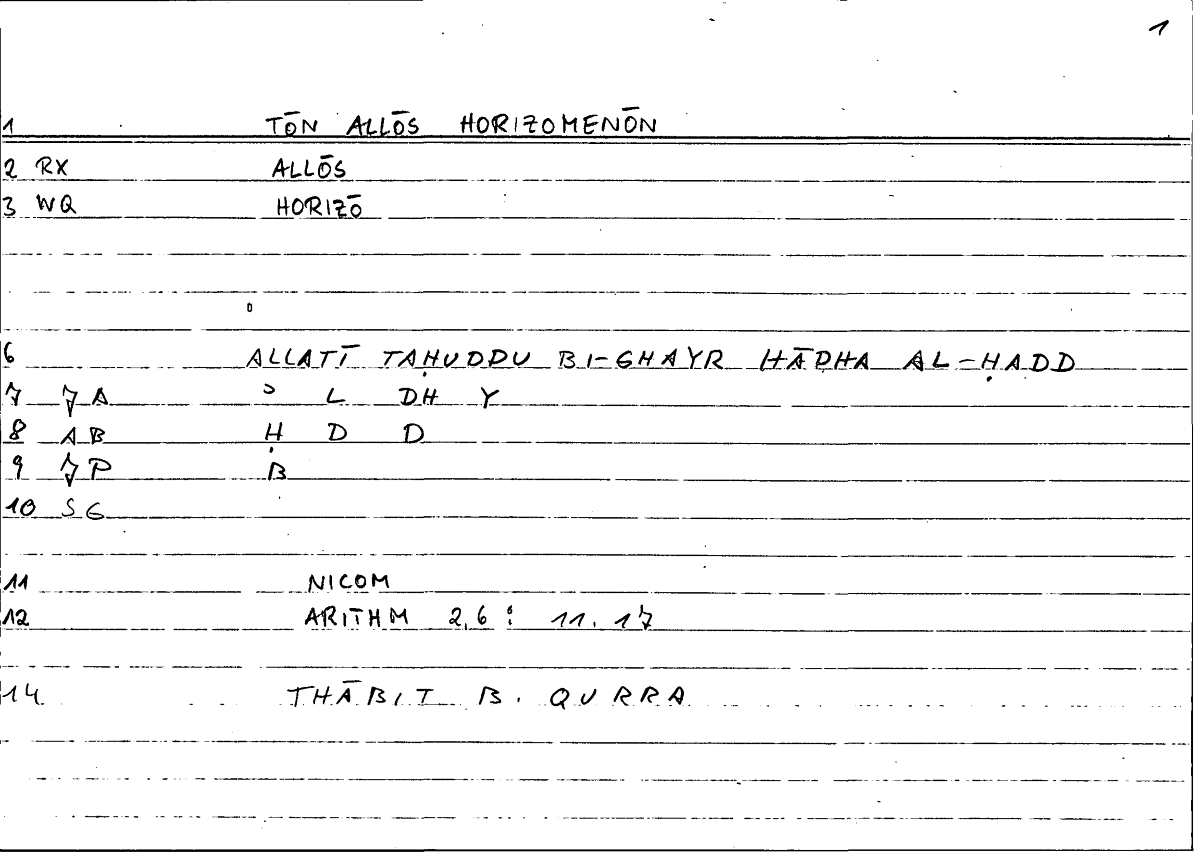 1
1 TŌN ALLŌS HORIZOMENŌN
2 RX ALLŌS
3 WQ HORIZŌ
6 ALLATĪ TAḤUDDU BI-GHAYR HĀDHA AL-ḤADD
7 7A ʾ L DH Y
8 AB Ḥ D D
9 7P B
10 SG
11 NICOM
12 ARITHM 2,6 : 11.17
14 THĀBIT B. QURRA